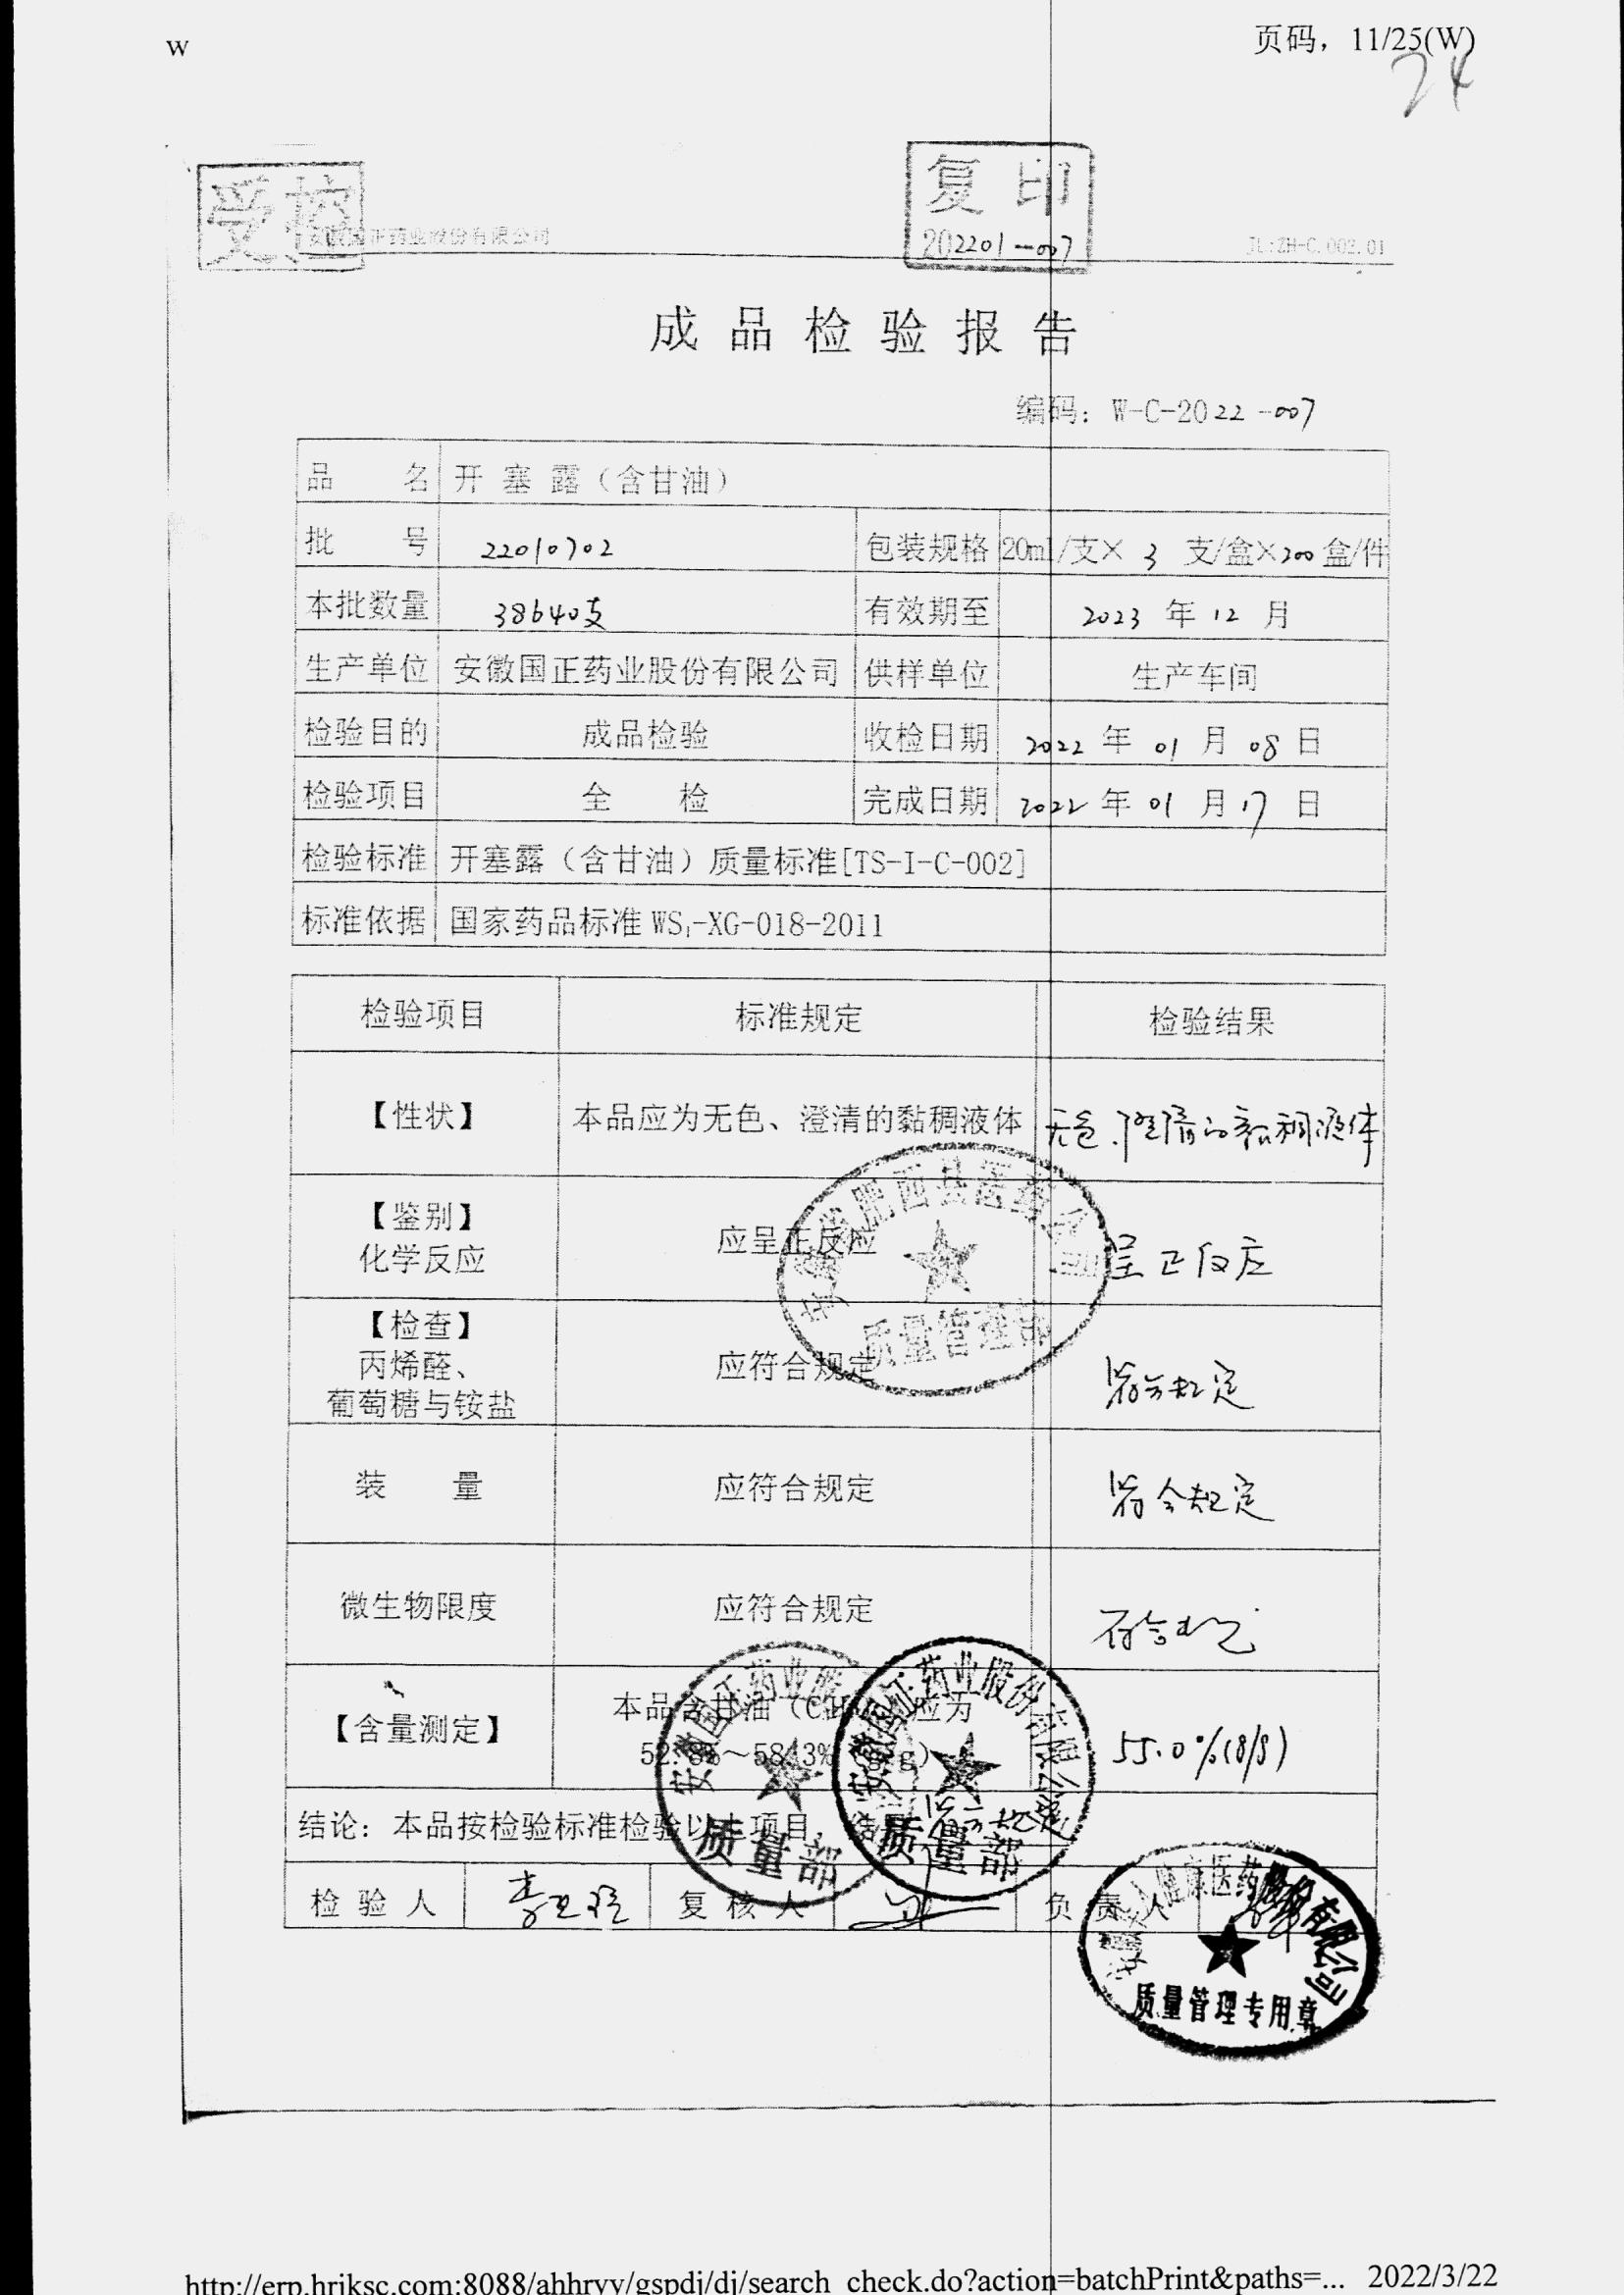 w
页码，11/25(W)
24
受控
复 印
202201-007
安徽国正药业股份有限公司
JL:ZH-C.002.01
成品检验报告
编码：W-C-2022-007
品 名 开塞露（含甘油）
批 号 22010702 包装规格 20ml/支×3 支/盒×200盒/件
本批数量 38640支 有效期至 2023 年 12 月
生产单位 安徽国正药业股份有限公司 供样单位 生产车间
检验目的 成品检验 收检日期 2022 年 01 月 08 日
检验项目 全 检 完成日期 2022 年 01 月 17 日
检验标准 开塞露（含甘油）质量标准[TS-I-C-002]
标准依据 国家药品标准 WS₁-XG-018-2011
检验项目 标准规定 检验结果
【性状】 本品应为无色、澄清的黏稠液体 无色、澄清的黏稠液体
【鉴别】
化学反应 应呈正反应 呈正反应
【检查】
丙烯醛、
葡萄糖与铵盐 应符合规定 符合规定
安徽省肥西县医药公司
质量管理部
装 量 应符合规定 符合规定
微生物限度 应符合规定 符合规定
【含量测定】 本品含甘油 应为
52.8%～58.3%(g/g) 55.0%(g/g)
安徽国正药业股份有限公司
质量部
安徽国正药业股份有限公司
质量部
结论：本品按检验标准检验以上项目，结果 符合规定
检 验 人 复 核 人 负 责 人
健康医药股份有限公司
质量管理专用章
http://erp.hrjksc.com:8088/ahhryy/gspdj/dj/search_check.do?action=batchPrint&paths=... 2022/3/22